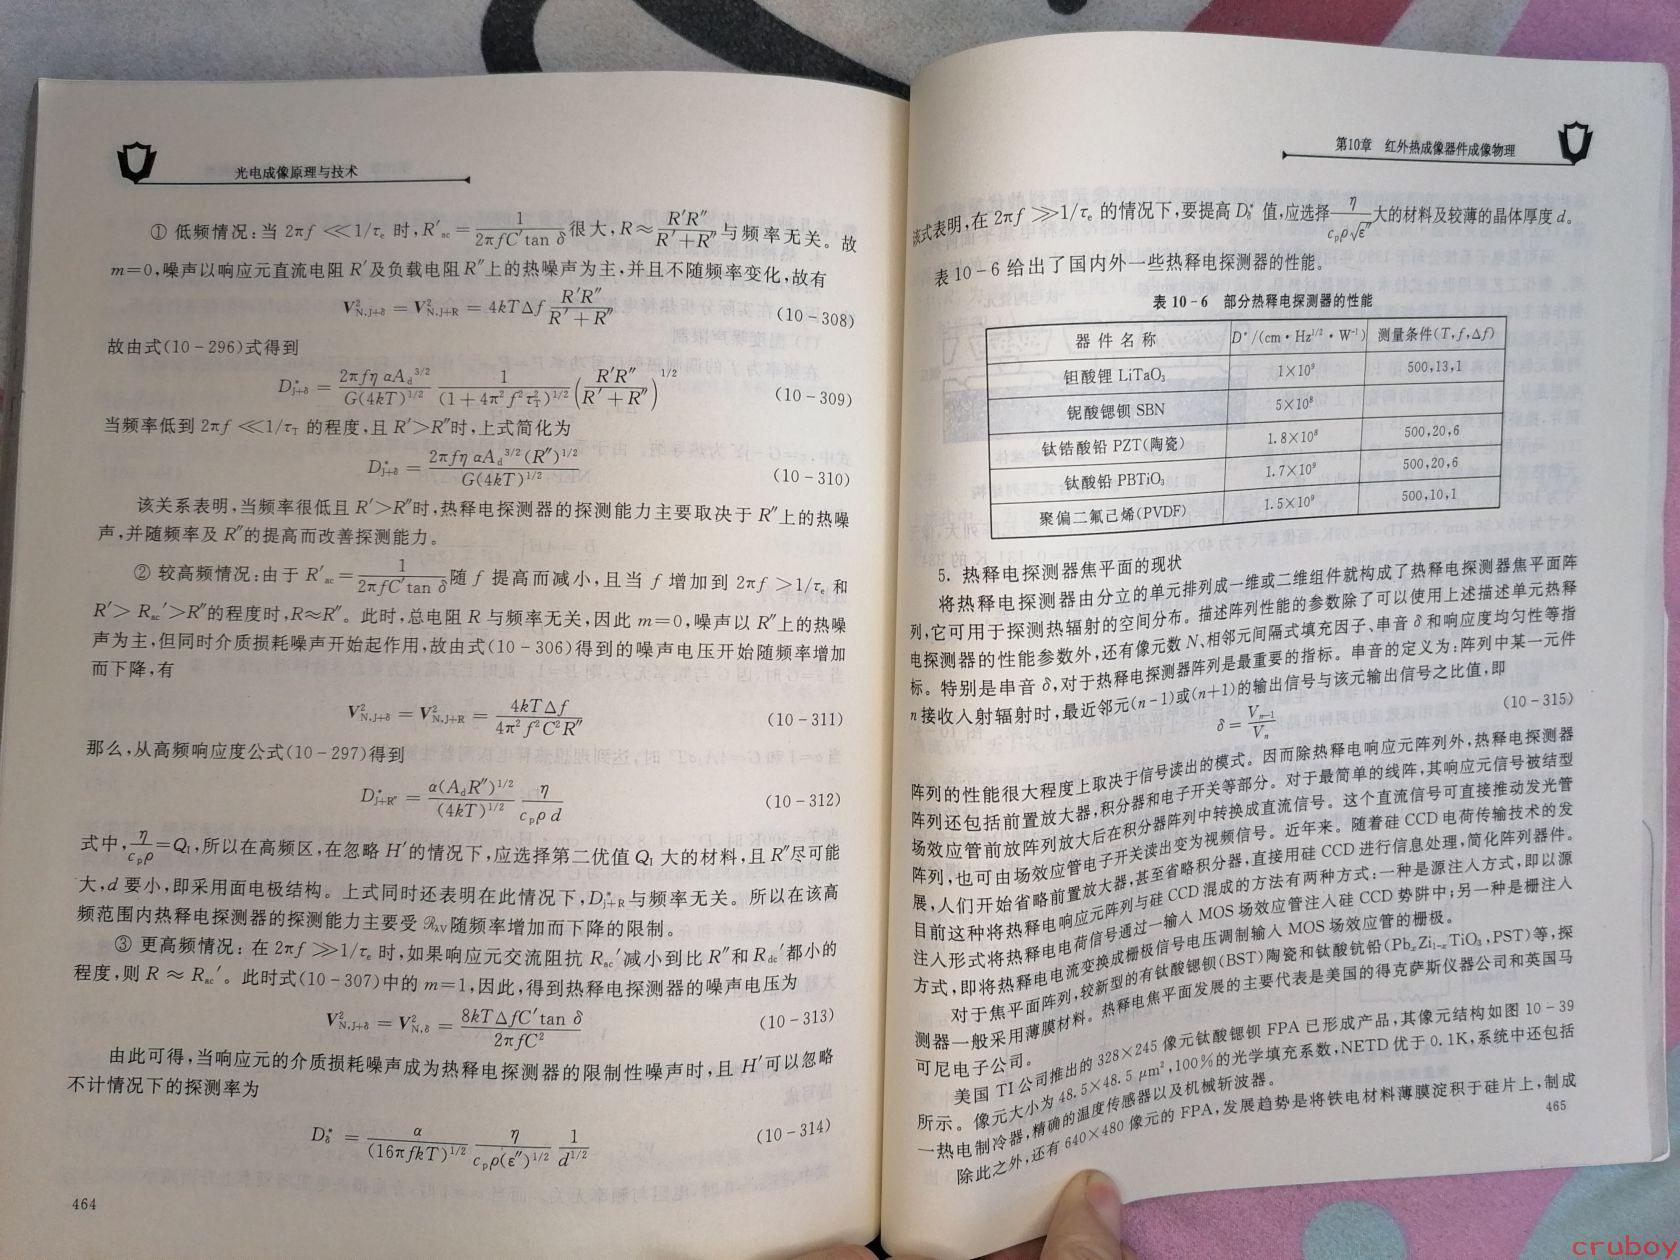 光电成像原理与技术
① 低频情况:当 2πf ≪1/τe 时,R′ac = 1/(2πfC′tan δ) 很大,R≈ R′R″/(R′+R″) 与频率无关。故
m=0,噪声以响应元直流电阻 R′及负载电阻 R″上的热噪声为主,并且不随频率变化,故有
V²N,J+δ = V²N,J+R = 4kTΔf R′R″/(R′+R″) (10-308)
故由式(10-296)式得到
D*J+δ = 2πfη αAd^3/2 / G(4kT)^1/2 · 1/(1+4π²f²τT²)^1/2 (R′R″/(R′+R″))^1/2 (10-309)
当频率低到 2πf ≪1/τT 的程度,且 R′>R″时,上式简化为
D*J+δ = 2πfη αAd^3/2 (R″)^1/2 / G(4kT)^1/2 (10-310)
该关系表明,当频率很低且 R′>R″时,热释电探测器的探测能力主要取决于 R″上的热噪
声,并随频率及 R″的提高而改善探测能力。
② 较高频情况:由于 R′ac = 1/(2πfC′tan δ) 随 f 提高而减小,且当 f 增加到 2πf >1/τe 和
R′> Rac′>R″的程度时,R≈R″。此时,总电阻 R 与频率无关,因此 m=0,噪声以 R″上的热噪
声为主,但同时介质损耗噪声开始起作用,故由式(10-306)得到的噪声电压开始随频率增加
而下降,有
V²N,J+δ = V²N,J+R = 4kTΔf / 4π²f²C²R″ (10-311)
那么,从高频响应度公式(10-297)得到
D*J+R″ = α(AdR″)^1/2 / (4kT)^1/2 · η/(cpρd) (10-312)
式中, η/(cpρ) =QI,所以在高频区,在忽略 H′的情况下,应选择第二优值 QI 大的材料,且 R″尽可能
大,d 要小,即采用面电极结构。上式同时还表明在此情况下,D*J+R与频率无关。所以在该高
频范围内热释电探测器的探测能力主要受 ℛλV随频率增加而下降的限制。
③ 更高频情况: 在 2πf ≫1/τe 时,如果响应元交流阻抗 Rac′减小到比 R″和 Rdc′都小的
程度,则 R ≈ Rac′。此时式(10-307)中的 m=1,因此,得到热释电探测器的噪声电压为
V²N,J+δ = V²N,δ = 8kTΔfC′tan δ / 2πfC² (10-313)
由此可得,当响应元的介质损耗噪声成为热释电探测器的限制性噪声时,且 H′可以忽略
不计情况下的探测率为
Dδ* = α/(16πfkT)^1/2 · η/(cpρ(ε″)^1/2) · 1/d^1/2 (10-314)
464
第10章 红外热成像器件成像物理
该式表明,在 2πf ≫1/τe 的情况下,要提高 Dδ* 值,应选择 η/(cpρ√ε″) 大的材料及较薄的晶体厚度 d。
表 10-6 给出了国内外一些热释电探测器的性能。
表 10-6 部分热释电探测器的性能
器件名称 D*/(cm·Hz^1/2·W⁻¹) 测量条件(T,f,Δf)
钽酸锂 LiTaO₃ 1×10⁹ 500,13,1
铌酸锶钡 SBN 5×10⁸
钛锆酸铅 PZT(陶瓷) 1.8×10⁸ 500,20,6
钛酸铅 PBTiO₃ 1.7×10⁹ 500,20,6
聚偏二氟己烯(PVDF) 1.5×10⁹ 500,10,1
5. 热释电探测器焦平面的现状
将热释电探测器由分立的单元排列成一维或二维组件就构成了热释电探测器焦平面阵
列,它可用于探测热辐射的空间分布。描述阵列性能的参数除了可以使用上述描述单元热释
电探测器的性能参数外,还有像元数 N、相邻元间隔式填充因子、串音 δ 和响应度均匀性等指
标。特别是串音 δ,对于热释电探测器阵列是最重要的指标。串音的定义为:阵列中某一元件
n 接收入射辐射时,最近邻元(n-1)或(n+1)的输出信号与该元输出信号之比值,即
δ = Vn-1/Vn (10-315)
阵列的性能很大程度上取决于信号读出的模式。因而除热释电响应元阵列外,热释电探测器
阵列还包括前置放大器,积分器和电子开关等部分。对于最简单的线阵,其响应元信号被结型
场效应管前放阵列放大后在积分器阵列中转换成直流信号。这个直流信号可直接推动发光管
阵列,也可由场效应管电子开关读出变为视频信号。近年来。随着硅 CCD 电荷传输技术的发
展,人们开始省略前置放大器,甚至省略积分器,直接用硅 CCD 进行信息处理,简化阵列器件。
目前这种将热释电响应元阵列与硅 CCD 混成的方法有两种方式:一种是源注入方式,即以源
注入形式将热释电电荷信号通过一输入 MOS 场效应管注入硅 CCD 势阱中;另一种是栅注入
方式,即将热释电电流变换成栅极信号电压调制输入 MOS 场效应管的栅极。
对于焦平面阵列,较新型的有钛酸锶钡(BST)陶瓷和钛酸钪铅(PbxZi1-xTiO₃,PST)等,探
测器一般采用薄膜材料。热释电焦平面发展的主要代表是美国的得克萨斯仪器公司和英国马
可尼电子公司。
美国 TI 公司推出的 328×245 像元钛酸锶钡 FPA 已形成产品,其像元结构如图 10-39
所示。像元大小为 48.5×48.5 μm²,100%的光学填充系数,NETD 优于 0.1K,系统中还包括
一热电制冷器,精确的温度传感器以及机械斩波器。
除此之外,还有 640×480 像元的 FPA,发展趋势是将铁电材料薄膜淀积于硅片上,制成
465
cruboy